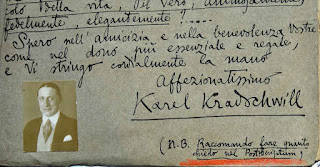 della vita, del Vero,
fedelmente, elegantemente!...
Spero nell'amicizia e nella benevolenza Vostre
come nel dono più essenziale e regale,
e Vi stringo cordialmente la mano
Affezionatissimo
Karel Kradschwill
(N.B. Raccomando fare quanto
chiedo nel Postscriptum)